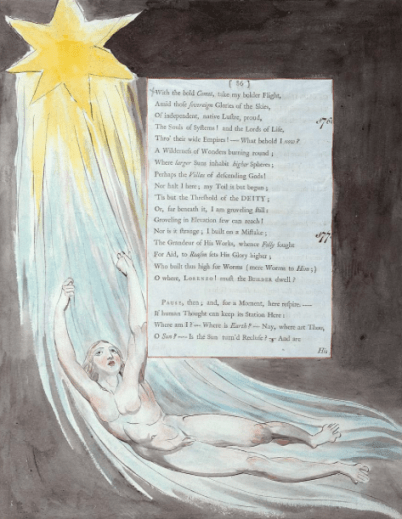 ( 86 )
With the bold Comet, take my bolder Flight,
Amid those sovereign Glories of the Skies,
Of independent, native Lustre, proud,
The Souls of Systems! and the Lords of Life,
Thro' their wide Empires! — What behold I now?
A Wilderness of Wonders burning round;
Where larger Suns inhabit higher Spheres;
Perhaps the Villas of descending Gods!
Nor halt I here; my Toil is but begun;
'Tis but the Threshold of the DEITY;
Or, far beneath it, I am groveling still:
Groveling in Elevation few can reach!
Nor is it strange; I built on a Mistake;
The Grandeur of His Works, whence Folly sought
For Aid, to Reason sets His Glory higher;
Who built thus high for Worms (mere Worms to Him;)
O where, LORENZO! must the BUILDER dwell?
PAUSE, then; and, for a Moment, here respire —
If human Thought can keep its Station Here:
Where am I? — Where is Earth? — Nay, where art Thou,
O Sun? — Is the Sun turn'd Recluse? And are